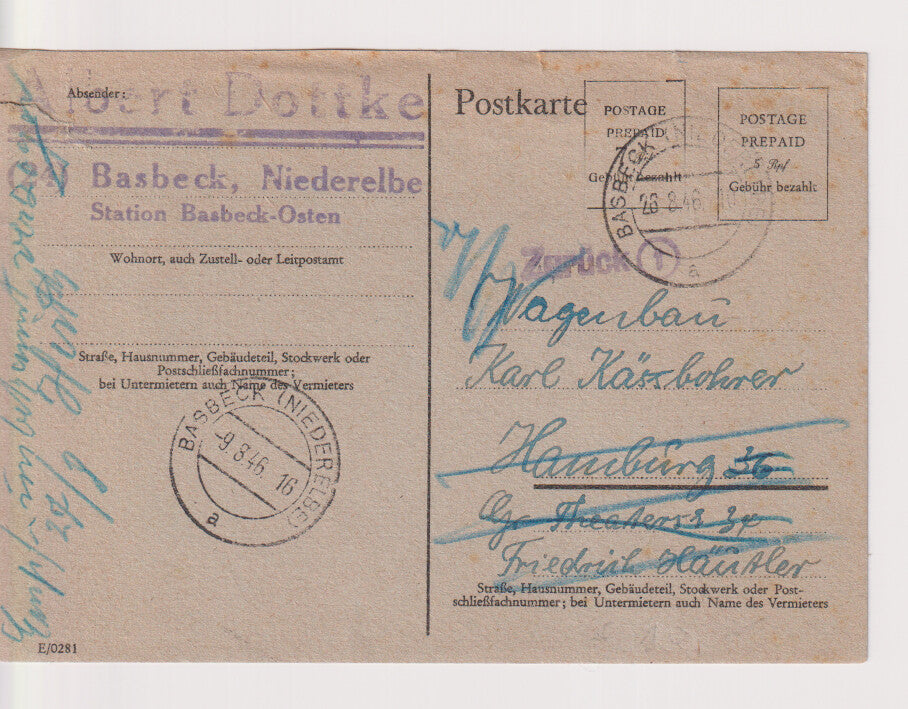 Absender:
Albert Dottke
Basbeck, Niederelbe
Station Basbeck-Osten
Wohnort, auch Zustell- oder Leitpostamt
Straße, Hausnummer, Gebäudeteil, Stockwerk oder
Postschließfachnummer;
bei Untermietern auch Name des Vermieters
BASBECK (NIEDERELBE)
-9.8.46. 16
a
E/0281
Postkarte
POSTAGE
PREPAID
Gebühr bezahlt
POSTAGE
PREPAID
5 Rpf
Gebühr bezahlt
BASBECK (NIED
26.8.46
a
Zurück 1
Wagenbau
Karl Kässbohrer
Hamburg 36
Gr. Theaterstr 34
Friedrich Häutler
Straße, Hausnummer, Gebäudeteil, Stockwerk oder Post-
schließfachnummer; bei Untermietern auch Name des Vermieters